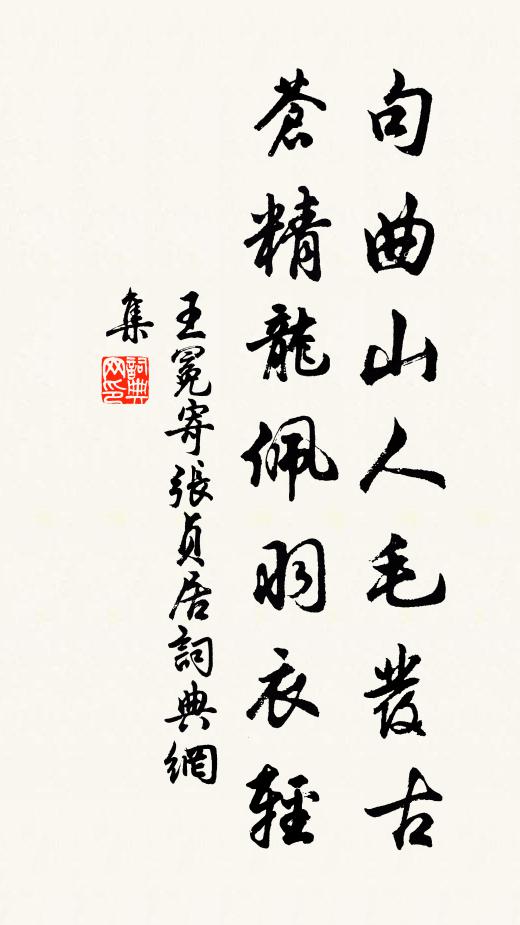 句曲山人毛發古
蒼精龍佩羽衣輕
王冕寄張貞居詞典網
集
詞典
網印